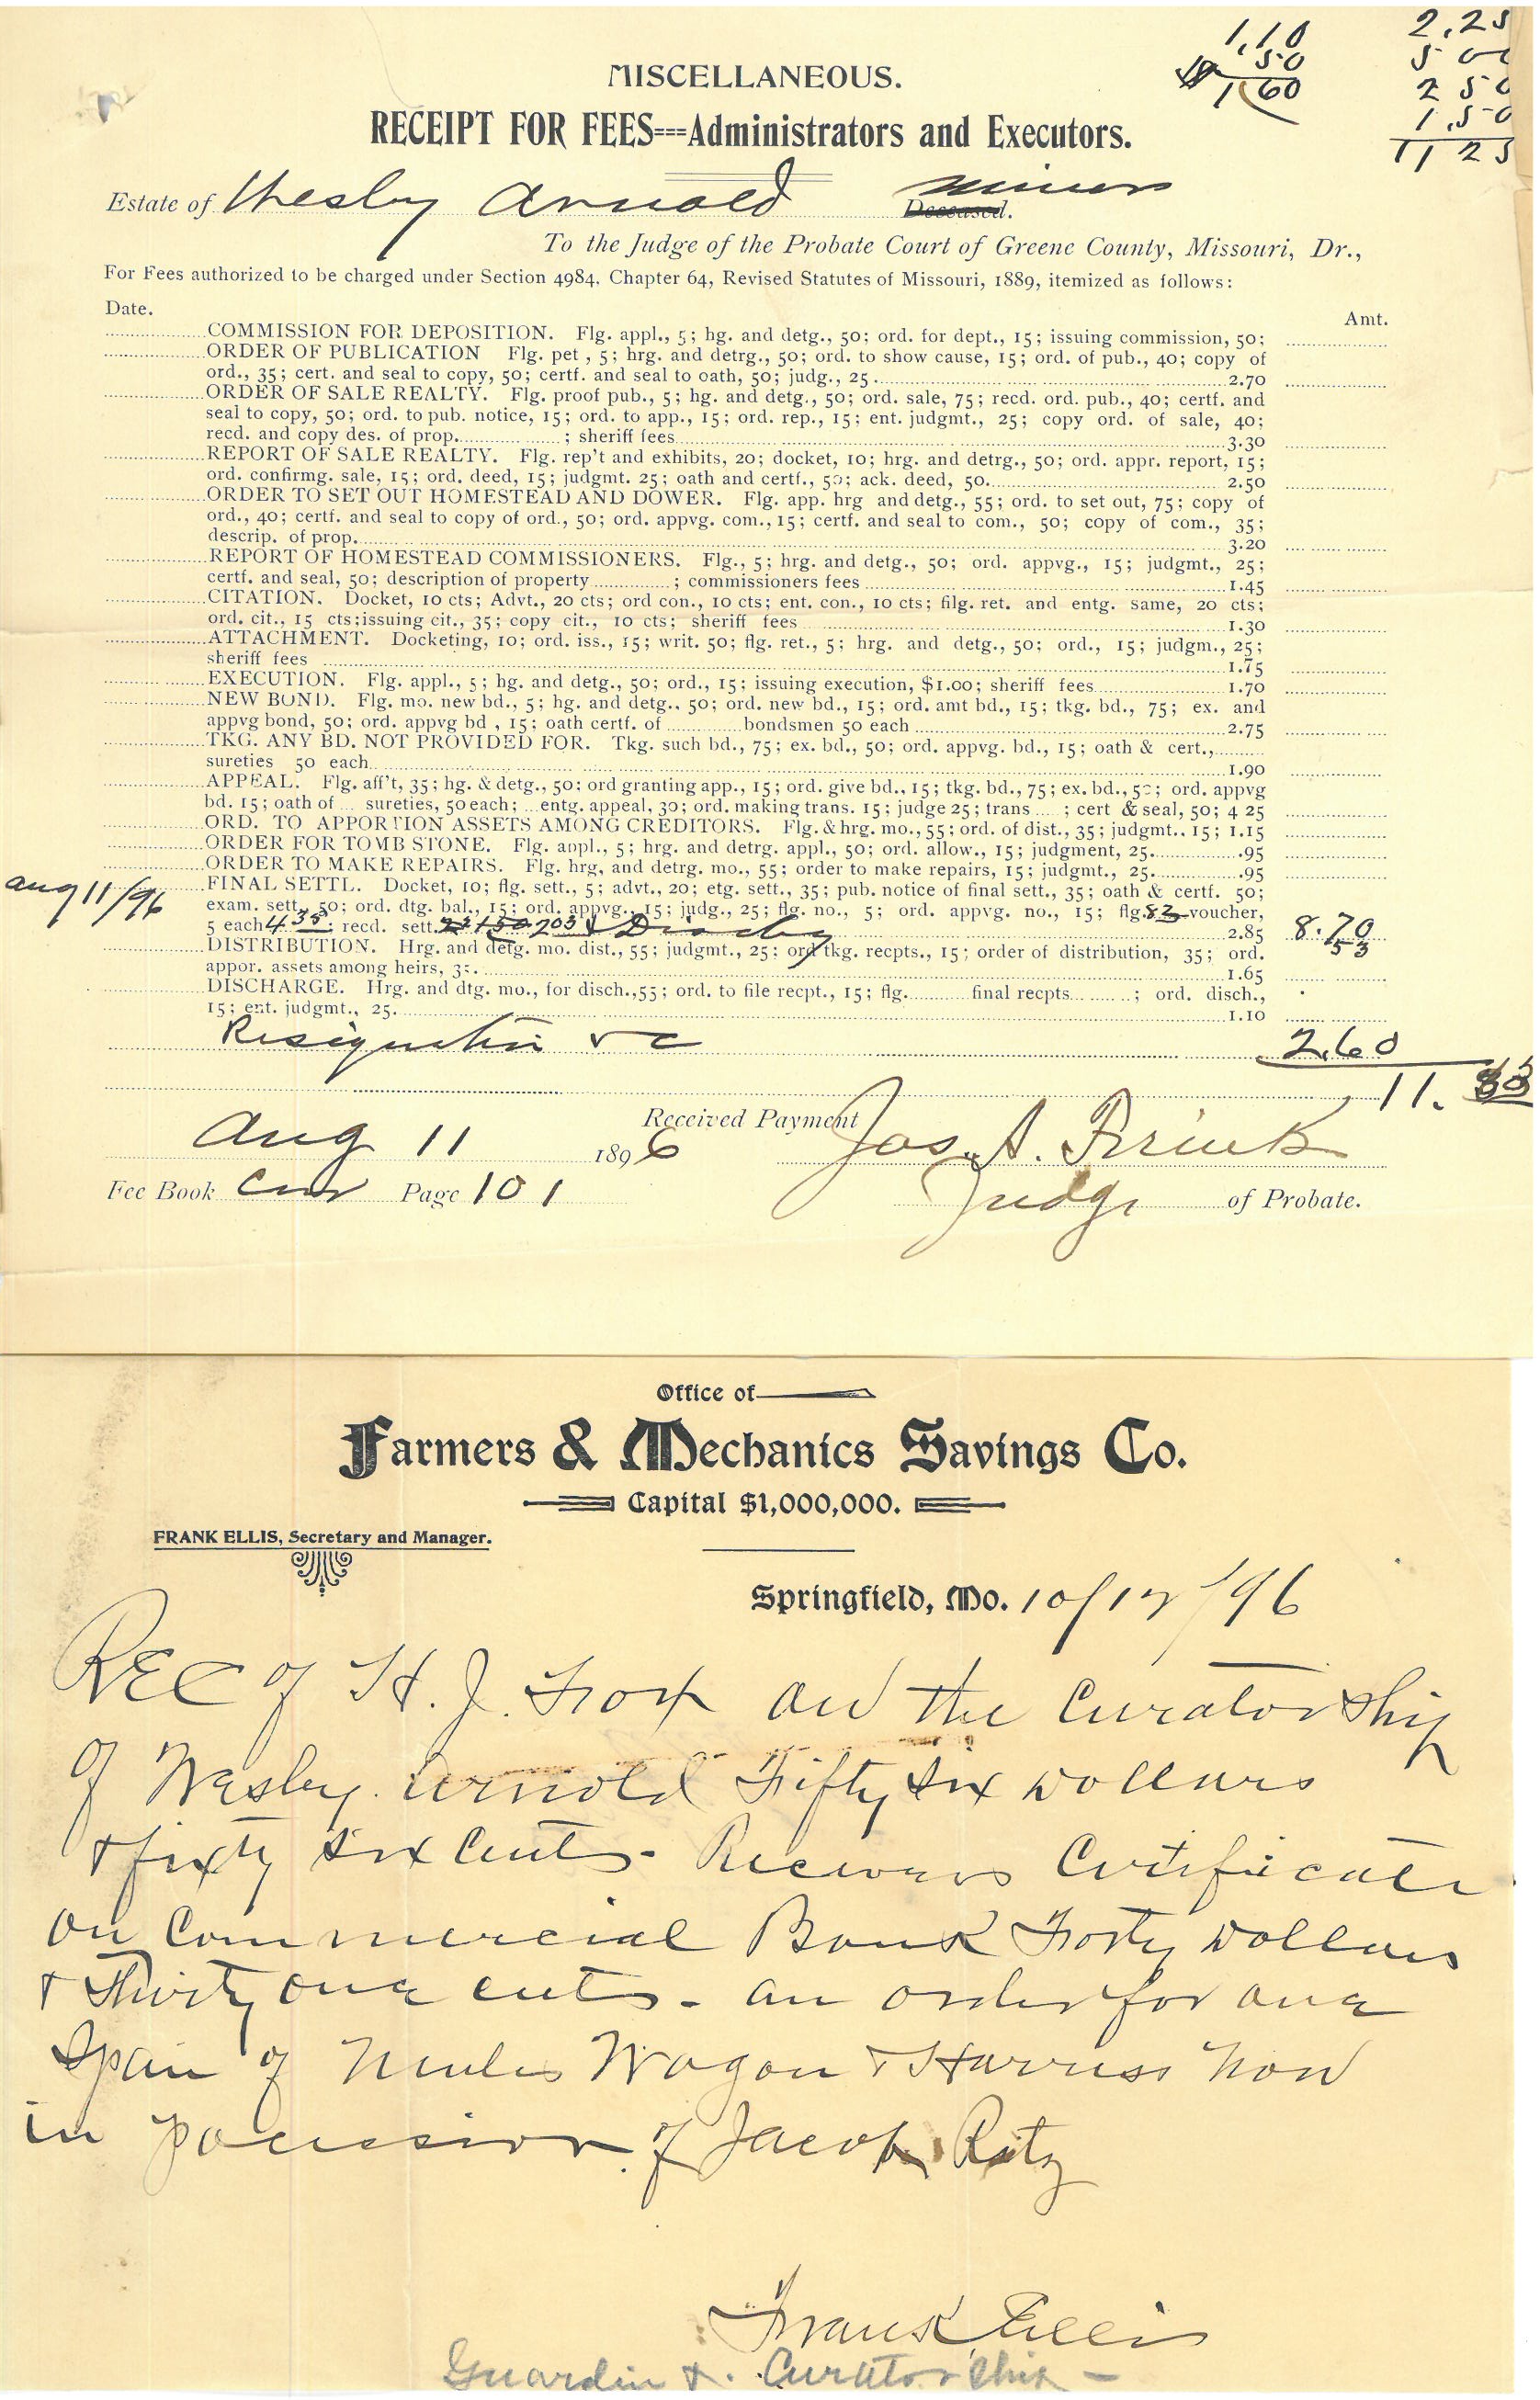 1.10
.50
$ 1.60
2.25
5 00
2 50
1.50
11 25
MISCELLANEOUS.
RECEIPT FOR FEES---Administrators and Executors.
Estate of Wesley Arnold minor Deceased.
To the Judge of the Probate Court of Greene County, Missouri, Dr.,
For Fees authorized to be charged under Section 4984, Chapter 64, Revised Statutes of Missouri, 1889, itemized as follows:
Date. Amt.
COMMISSION FOR DEPOSITION. Flg. appl., 5; hg. and detg., 50; ord. for dept., 15; issuing commission, 50;
ORDER OF PUBLICATION Flg. pet , 5; hrg. and detrg., 50; ord. to show cause, 15; ord. of pub., 40; copy of
ord., 35; cert. and seal to copy, 50; certf. and seal to oath, 50; judg., 25 2.70
ORDER OF SALE REALTY. Flg. proof pub., 5; hg. and detg., 50; ord. sale, 75; recd. ord. pub., 40; certf. and
seal to copy, 50; ord. to pub. notice, 15; ord. to app., 15; ord. rep., 15; ent. judgmt., 25; copy ord. of sale, 40;
recd. and copy des. of prop. ; sheriff fees 3.30
REPORT OF SALE REALTY. Flg. rep't and exhibits, 20; docket, 10; hrg. and detrg., 50; ord. appr. report, 15;
ord. confirmg. sale, 15; ord. deed, 15; judgmt. 25; oath and certf., 50; ack. deed, 50. 2.50
ORDER TO SET OUT HOMESTEAD AND DOWER. Flg. app. hrg and detg., 55; ord. to set out, 75; copy of
ord., 40; certf. and seal to copy of ord., 50; ord. appvg. com., 15; certf. and seal to com., 50; copy of com., 35;
descrip. of prop. 3.20
REPORT OF HOMESTEAD COMMISSIONERS. Flg., 5; hrg. and detg., 50; ord. appvg., 15; judgmt., 25;
certf. and seal, 50; description of property ; commissioners fees 1.45
CITATION. Docket, 10 cts; Advt., 20 cts; ord con., 10 cts; ent. con., 10 cts; filg. ret. and entg. same, 20 cts;
ord. cit., 15 cts;issuing cit., 35; copy cit., 10 cts; sheriff fees 1.30
ATTACHMENT. Docketing, 10; ord. iss., 15; writ. 50; flg. ret., 5; hrg. and detg., 50; ord., 15; judgm., 25;
sheriff fees 1.75
EXECUTION. Flg. appl., 5; hg. and detg., 50; ord., 15; issuing execution, $1.00; sheriff fees 1.70
NEW BOND. Flg. mo. new bd., 5; hg. and detg., 50; ord. new bd., 15; ord. amt bd., 15; tkg. bd., 75; ex. and
appvg bond, 50; ord. appvg bd , 15; oath certf. of bondsmen 50 each 2.75
TKG. ANY BD. NOT PROVIDED FOR. Tkg. such bd., 75; ex. bd., 50; ord. appvg. bd., 15; oath & cert.,
sureties 50 each 1.90
APPEAL. Flg. aff't, 35; hg. & detg., 50; ord granting app., 15; ord. give bd., 15; tkg. bd., 75; ex. bd., 50; ord. appvg
bd. 15; oath of sureties, 50 each; entg. appeal, 30; ord. making trans. 15; judge 25; trans ; cert & seal, 50; 4 25
ORD. TO APPORTION ASSETS AMONG CREDITORS. Flg. & hrg. mo., 55; ord. of dist., 35; judgmt., 15; 1.15
ORDER FOR TOMB STONE. Flg. appl., 5; hrg. and detrg. appl., 50; ord. allow., 15; judgment, 25. .95
ORDER TO MAKE REPAIRS. Flg. hrg, and detrg. mo., 55; order to make repairs, 15; judgmt., 25. .95
Aug 11/96 FINAL SETTL. Docket, 10; flg. sett., 5; advt., 20; etg. sett., 35; pub. notice of final sett., 35; oath & certf. 50;
exam. sett., 50; ord. dtg. bal., 15; ord. appvg., 15; judg., 25; flg. no., 5; ord. appvg. no., 15; flg. 82 voucher,
5 each 435; recd. sett. 2.85 8.70
DISTRIBUTION. Hrg. and detg. mo. dist., 55; judgmt., 25; ord tkg. recpts., 15; order of distribution, 35; ord. 53
appor. assets among heirs, 35. 1.65
DISCHARGE. Hrg. and dtg. mo., for disch.,55; ord. to file recpt., 15; flg. final recpts. ; ord. disch.,
15; ent. judgmt., 25. 1.10
Resignation & c 2.60
11.
Received Payment
Aug 11 1896 Jos. A.
Fee Book Page 101 Judge of Probate.
Office of
Farmers & Mechanics Savings Co.
Capital $1,000,000.
FRANK ELLIS, Secretary and Manager.
Springfield, Mo. 10/17/96
REC of H. J. Trox on the Curatorship
of Wesley Arnold Fifty six Dollars
& sixty six Cents - Receivers Certificate
on Commercial Bank Forty Dollars
& Thirty one cents - an order for one
Span of Mules Wagon & Harness now
in possession of Jacob Ritz
Frank Ellis
Guardin & Curatorship -